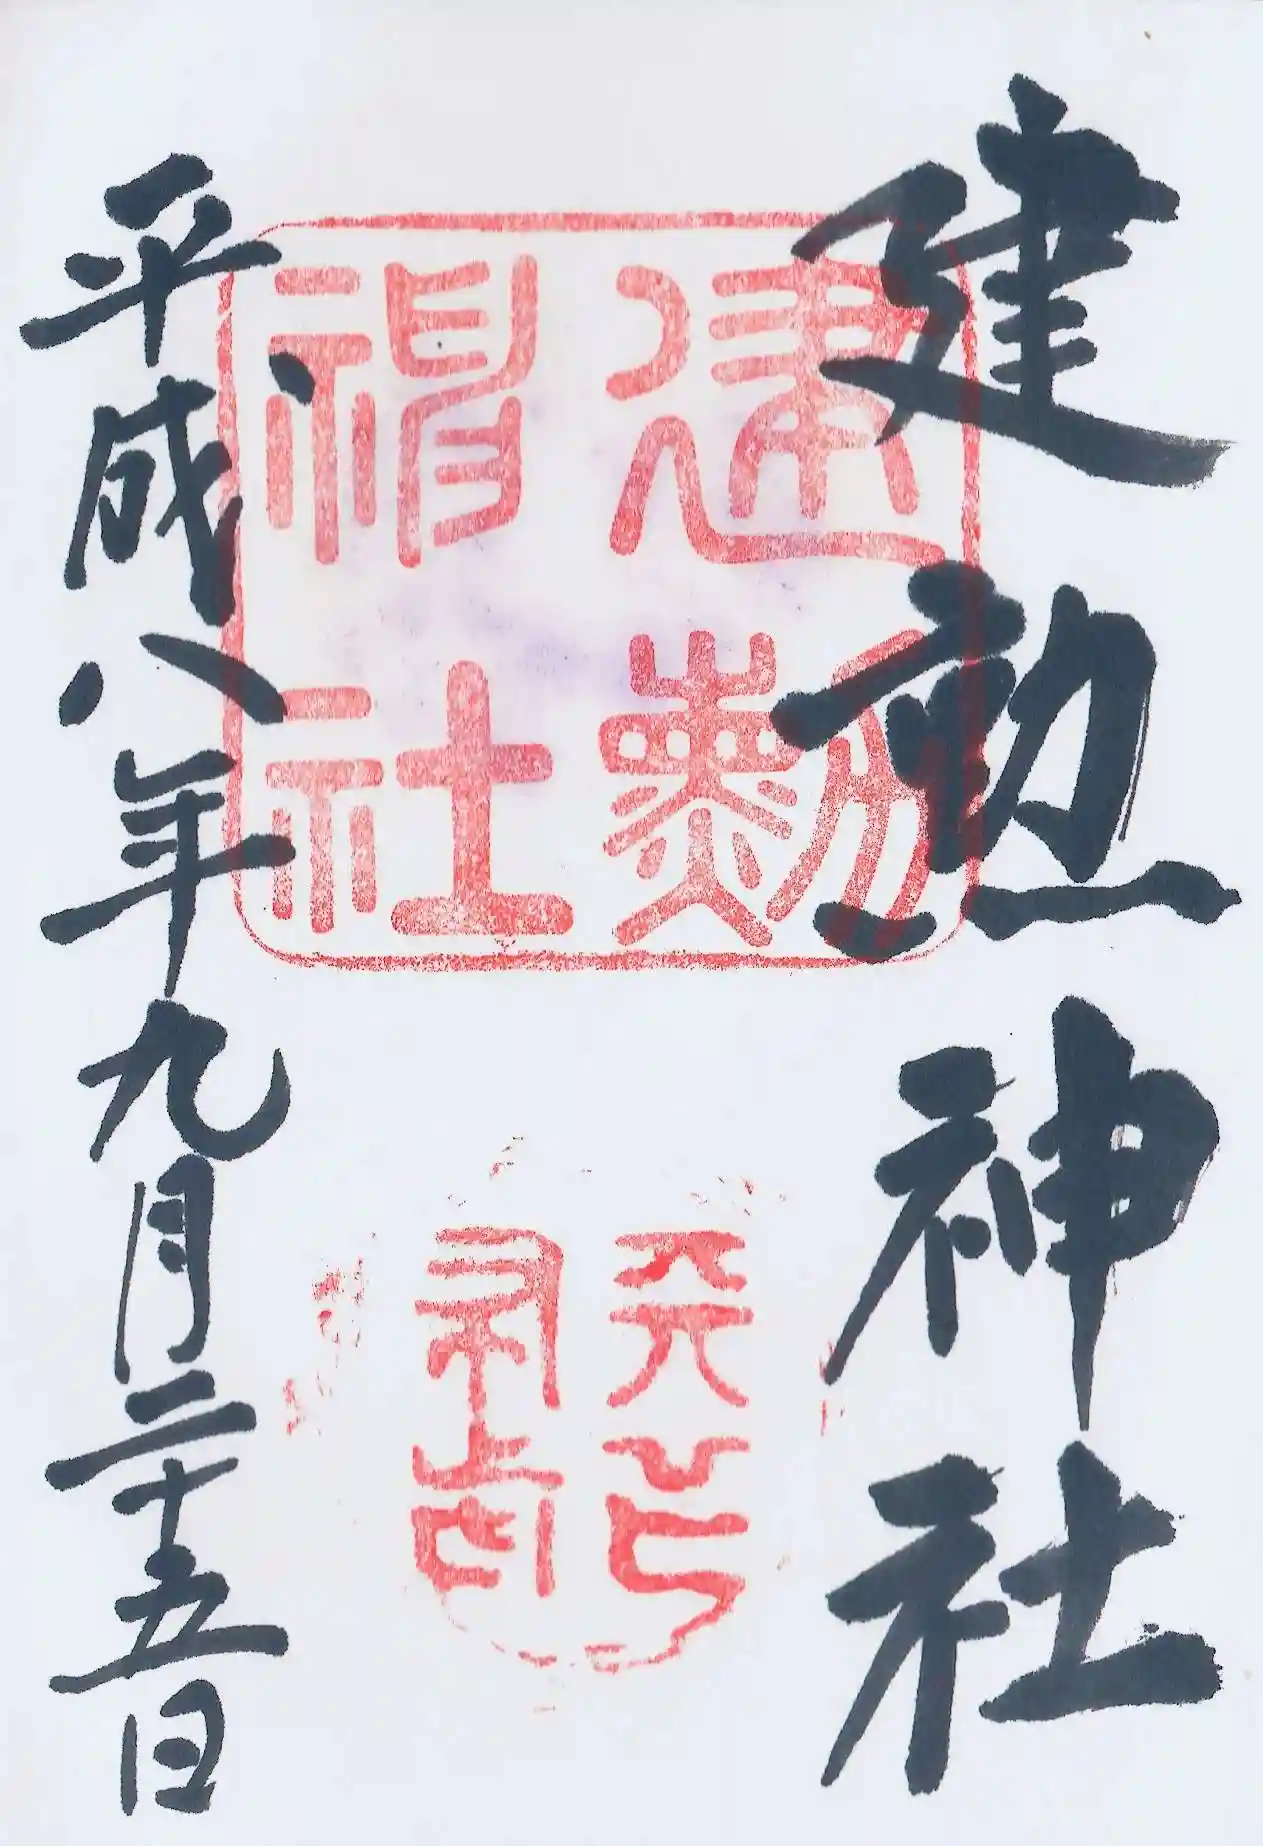 建勲神社
建勲神社
天下布武
平成八年九月二十五日